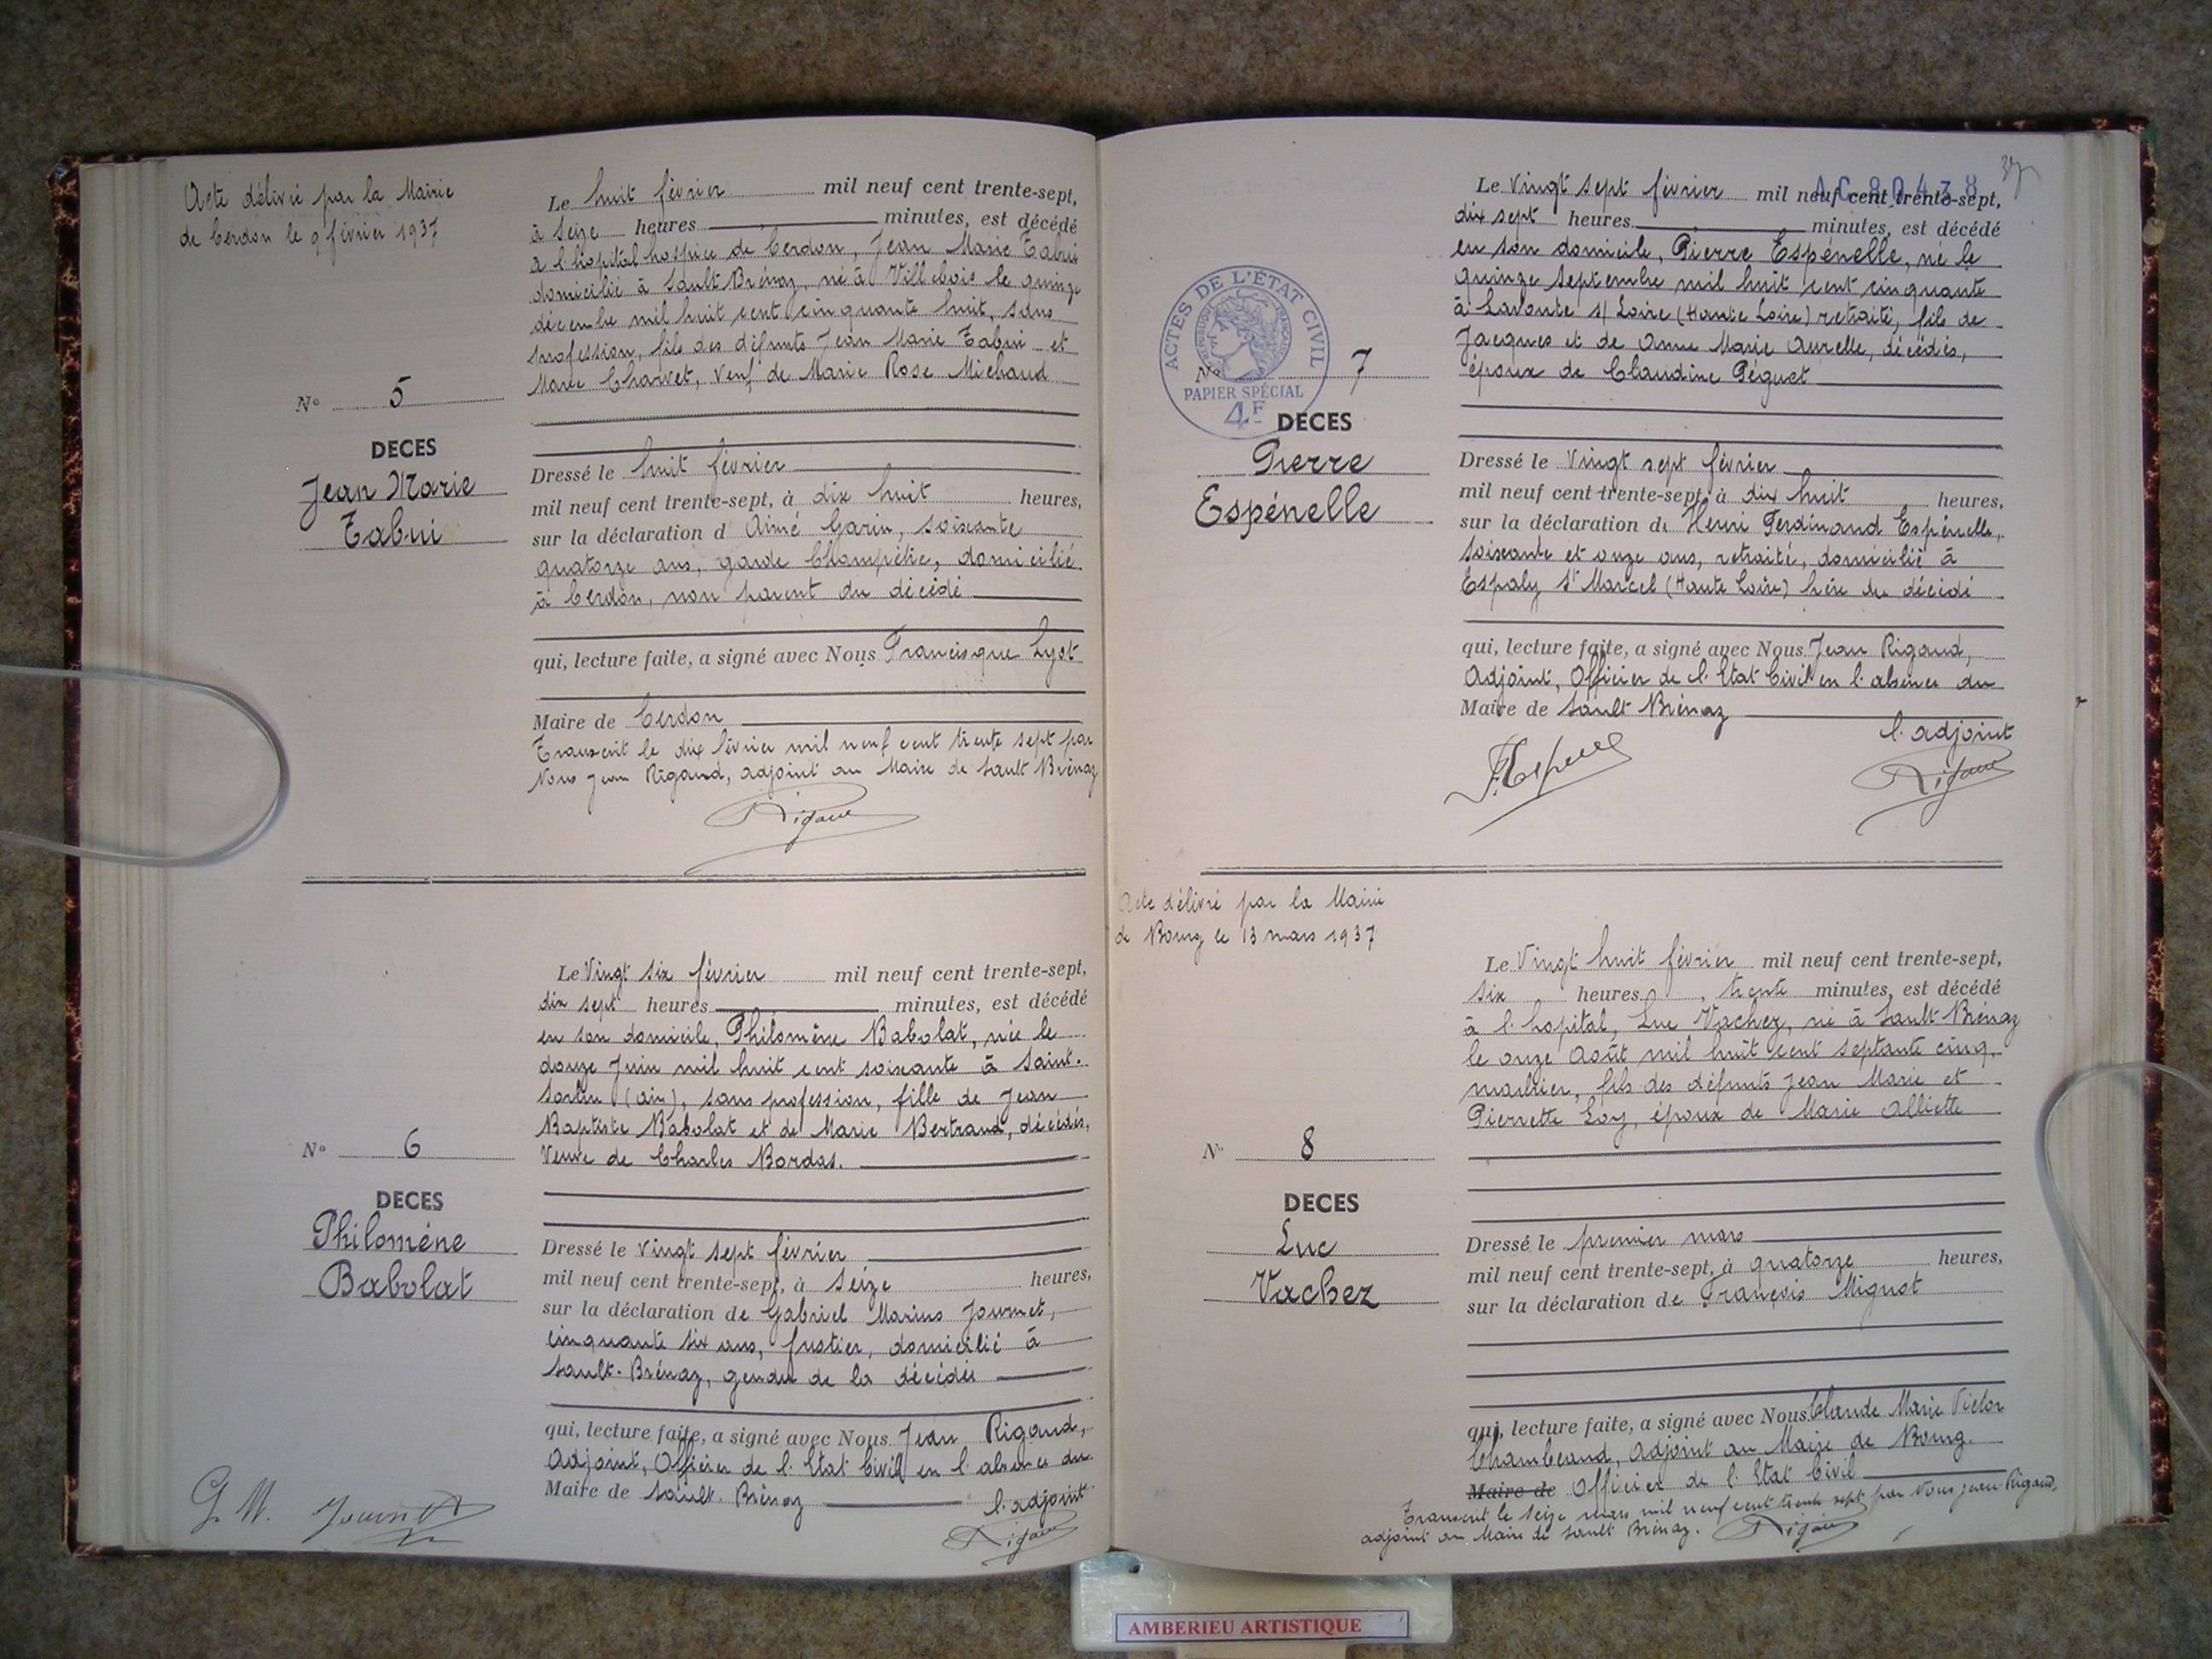 Acte délivré par la Mairie
de Cerdon le 9 février 1937
Le huit février mil neuf cent trente-sept,
à seize heures minutes, est décédé
à l'hôpital hospice de Cerdon, Jean Marie Tabui
domicilié à Sault Brénaz, né à Villebois le quinze
décembre mil huit cent cinquante huit, sans
profession, fils des défunts Jean Marie Tabui et
Marie Charvet, veuf de Marie Rose Michaud
N° 5
DECES
Jean Marie
Tabui
Dressé le huit février
mil neuf cent trente-sept, à dix huit heures,
sur la déclaration d'Aimé Garin, soixante
quatorze ans, garde Champêtre, domicilié
à Cerdon, non parent du décédé
qui, lecture faite, a signé avec Nous Francisque Lyot
Maire de Cerdon
Transcrit le dix février mil neuf cent trente sept par
Nous Jean Rigaud, adjoint au Maire de Sault Brénaz
Rigaud
Le Vingt six février mil neuf cent trente-sept,
dix sept heures minutes, est décédé
en son domicile, Philomène Babolat, née le
douze Juin mil huit cent soixante à Saint-
Sorlin (Ain), sans profession, fille de Jean
Baptiste Babolat et de Marie Bertrand, décédés,
Veuve de Charles Bordas.
N° 6
DECES
Philomène
Babolat
Dressé le vingt sept février
mil neuf cent trente-sept, à seize heures,
sur la déclaration de Gabriel Marius Journet,
cinquante six ans, fustier, domicilié à
Sault-Brénaz, gendre de la décédée
qui, lecture faite, a signé avec Nous Jean Rigaud,
Adjoint, Officier de l'Etat Civil en l'absence du
Maire de Sault-Brénaz
l'adjoint
G. M. Journet
Rigaud
37
AC 80438
Le Vingt sept février mil neuf cent trente-sept,
dix sept heures minutes, est décédé
en son domicile, Pierre Espénelle, né le
quinze septembre mil huit cent cinquante
à Lavoute s/ Loire (Haute Loire) retraité, fils de
Jacques et de Anne Marie Aurelle, décédés,
époux de Claudine Péguet
ACTES DE L'ÉTAT CIVIL
RÉPUBLIQUE FRANÇAISE
PAPIER SPÉCIAL
4F
N° 7
DECES
Pierre
Espénelle
Dressé le Vingt sept février
mil neuf cent trente-sept, à dix huit heures,
sur la déclaration de Henri Ferdinand Espénelle,
soixante et onze ans, retraité, domicilié à
Espaly St Marcel (Haute Loire) frère du décédé
qui, lecture faite, a signé avec Nous Jean Rigaud,
Adjoint, Officier de l'Etat Civil en l'absence du
Maire de Sault Brénaz
l'adjoint
Rigaud
Acte délivré par la Mairie
de Bourg le 13 mars 1937
Le Vingt huit février mil neuf cent trente-sept,
six heures, trente minutes, est décédé
à l'hopital, Luc Vachez, né à Sault-Brénaz
le onze Août mil huit cent septante cinq,
marbrier, fils des défunts Jean Marie et
Pierrette Loy, époux de Marie Alliette
N° 8
DECES
Luc
Vachez
Dressé le premier mars
mil neuf cent trente-sept, à quatorze heures,
sur la déclaration de François Mignot
qui, lecture faite, a signé avec Nous Claude Marie Victor
Chambeaud, Adjoint au Maire de Bourg.
Maire de Officier de l'Etat Civil
Transcrit le seize mars mil neuf cent trente sept par Nous Jean Rigaud,
adjoint au Maire de Sault Brénaz. Rigaud
AMBERIEU ARTISTIQUE